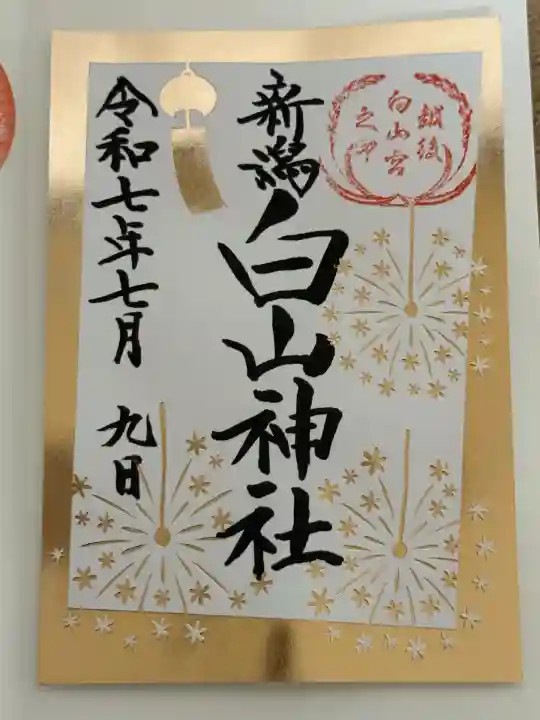 越後
白山宮
之印
新潟
白山神社
令和七年七月 九日